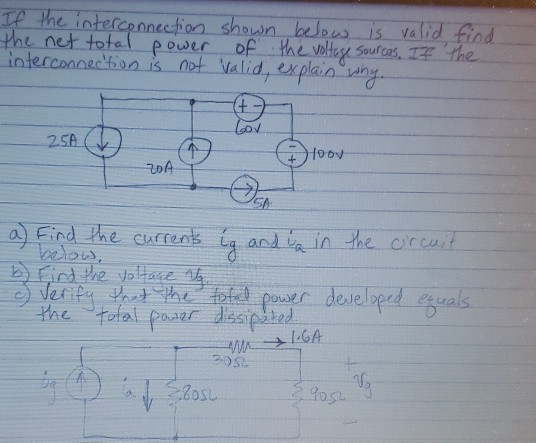 If the interconnection shown below is valid find
the net total power of the voltage sources. If the
interconnection is not valid, explain why.
+ -
60V
25A
- +
100V
20A
5A
a) Find the currents ig and ia in the circuit
below.
b) Find the voltage Vg
c) Verify that the total power developed equals
the total power dissipated
1.6A
30Ω
+
ig
ia
80Ω
90Ω
Vg
-